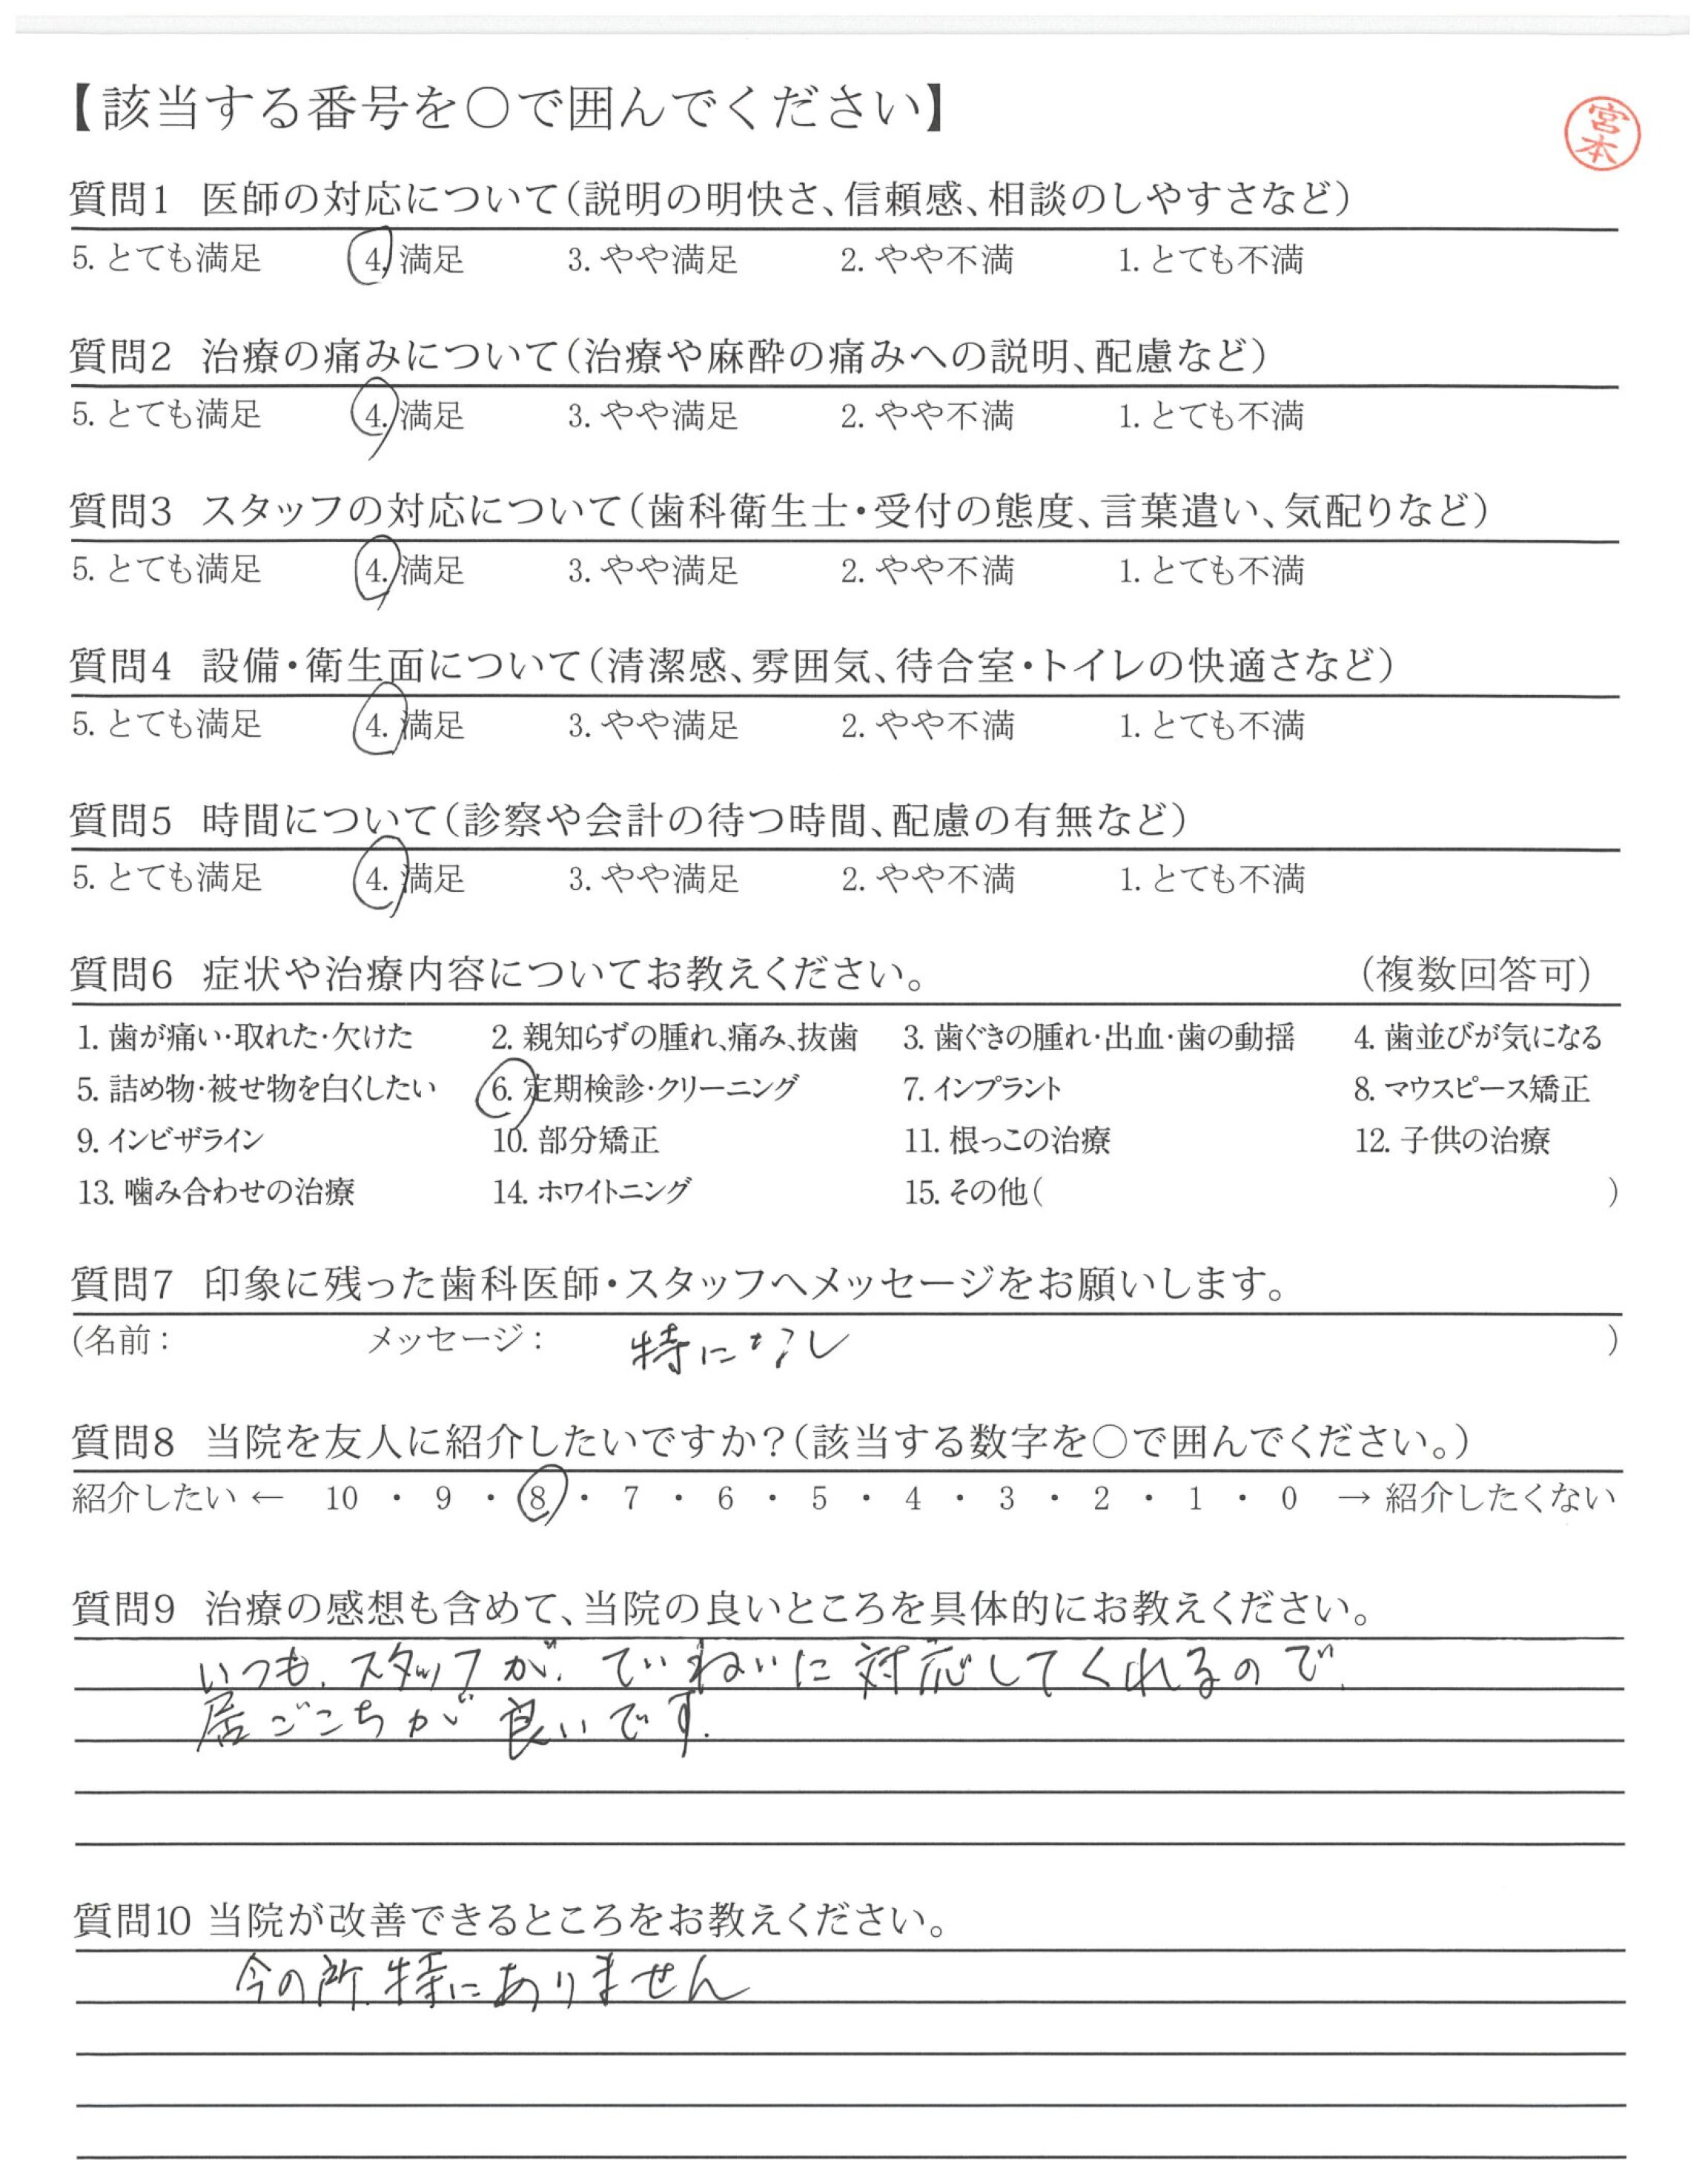 【該当する番号を○で囲んでください】
宮本
質問1 医師の対応について(説明の明快さ、信頼感、相談のしやすさなど)
5. とても満足 4. 満足 3. やや満足 2. やや不満 1. とても不満
質問2 治療の痛みについて(治療や麻酔の痛みへの説明、配慮など)
5. とても満足 4. 満足 3. やや満足 2. やや不満 1. とても不満
質問3 スタッフの対応について(歯科衛生士・受付の態度、言葉遣い、気配りなど)
5. とても満足 4. 満足 3. やや満足 2. やや不満 1. とても不満
質問4 設備・衛生面について(清潔感、雰囲気、待合室・トイレの快適さなど)
5. とても満足 4. 満足 3. やや満足 2. やや不満 1. とても不満
質問5 時間について(診察や会計の待つ時間、配慮の有無など)
5. とても満足 4. 満足 3. やや満足 2. やや不満 1. とても不満
質問6 症状や治療内容についてお教えください。 (複数回答可)
1. 歯が痛い・取れた・欠けた 2. 親知らずの腫れ、痛み、抜歯 3. 歯ぐきの腫れ・出血・歯の動揺 4. 歯並びが気になる
5. 詰め物・被せ物を白くしたい 6. 定期検診・クリーニング 7. インプラント 8. マウスピース矯正
9. インビザライン 10. 部分矯正 11. 根っこの治療 12. 子供の治療
13. 噛み合わせの治療 14. ホワイトニング 15. その他( )
質問7 印象に残った歯科医師・スタッフへメッセージをお願いします。
(名前: メッセージ: 特になし )
質問8 当院を友人に紹介したいですか?(該当する数字を○で囲んでください。)
紹介したい ← 10 ・ 9 ・ 8 ・ 7 ・ 6 ・ 5 ・ 4 ・ 3 ・ 2 ・ 1 ・ 0 → 紹介したくない
質問9 治療の感想も含めて、当院の良いところを具体的にお教えください。
いつも、スタッフが、ていねいに対応してくれるので、
居ごこちが良いです.
質問10 当院が改善できるところをお教えください。
今の所、特にありません